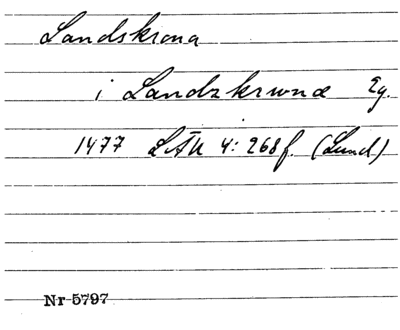 Landskrona
i Landzkrwnæ Eg.
1477 LÄU 4: 268 f. (Lund)
Nr 5797